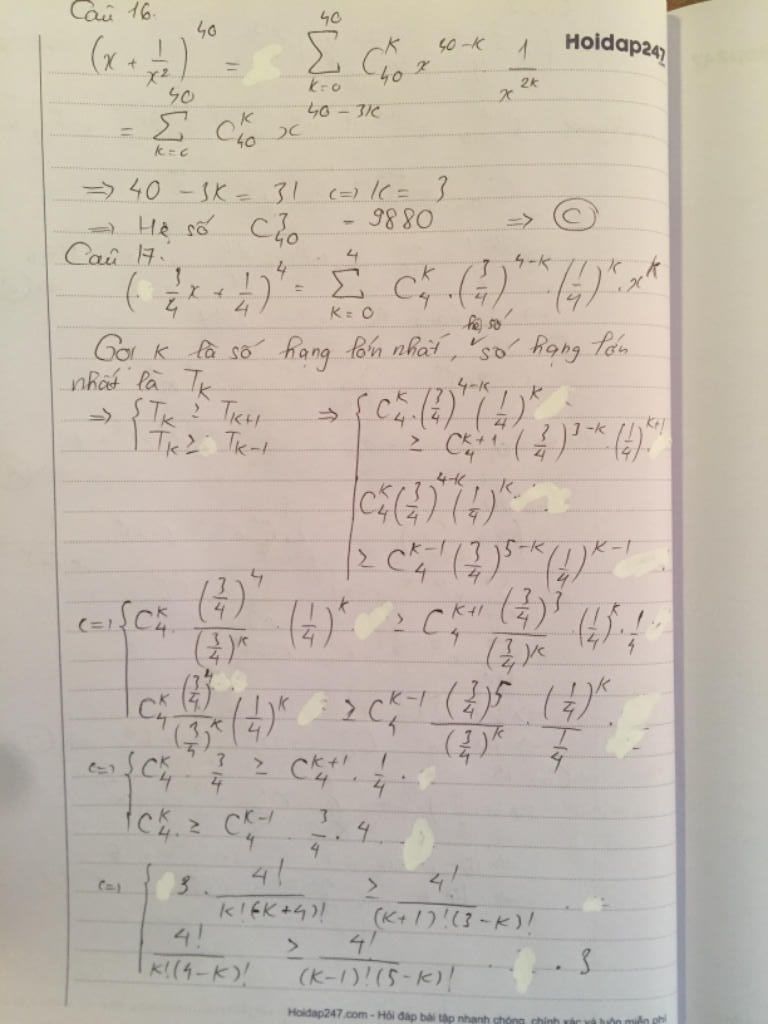 Câu 16.
Hoidap247
(x + 1/x²)^40 = Σ_{k=0}^{40} C_40^k x^{40-k} 1/x^{2k}
= Σ_{k=0}^{40} C_40^k x^{40-3k}
=> 40 - 3k = 31 <=> k = 3
=> Hệ số C_40^3 = 9880 => C
Câu 17.
(3/4 x + 1/4)^4 = Σ_{k=0}^{4} C_4^k . (3/4)^{4-k} . (1/4)^k . x^k
hệ số
Gọi k là số hạng lớn nhất, số hạng lớn
nhất là T_k
=> { T_k ≥ T_{k+1} => { C_4^k . (3/4)^{4-k} (1/4)^k
T_k ≥ T_{k-1} ≥ C_4^{k+1} (3/4)^{3-k} (1/4)^{k+1}
C_4^k (3/4)^{4-k} (1/4)^k
≥ C_4^{k-1} (3/4)^{5-k} (1/4)^{k-1}
<=> { C_4^k . (3/4)^4/(3/4)^k . (1/4)^k ≥ C_4^{k+1} (3/4)^3/(3/4)^k . (1/4)^k . 1/4
C_4^k (3/4)^4/(3/4)^k (1/4)^k ≥ C_4^{k-1} (3/4)^5/(3/4)^k . (1/4)^k/(1/4) .
<=> { C_4^k . 3/4 ≥ C_4^{k+1} . 1/4 .
C_4^k . ≥ C_4^{k-1} 3/4 . 4
<=> { 3 . 4!/(k!(-k+4)!) ≥ 4!/((k+1)!(3-k)!)
4!/(k!(4-k)!) ≥ 4!/((k-1)!(5-k)!) . 3
Hoidap247.com - Hỏi đáp bài tập nhanh chóng, chính xác và luôn miễn phí